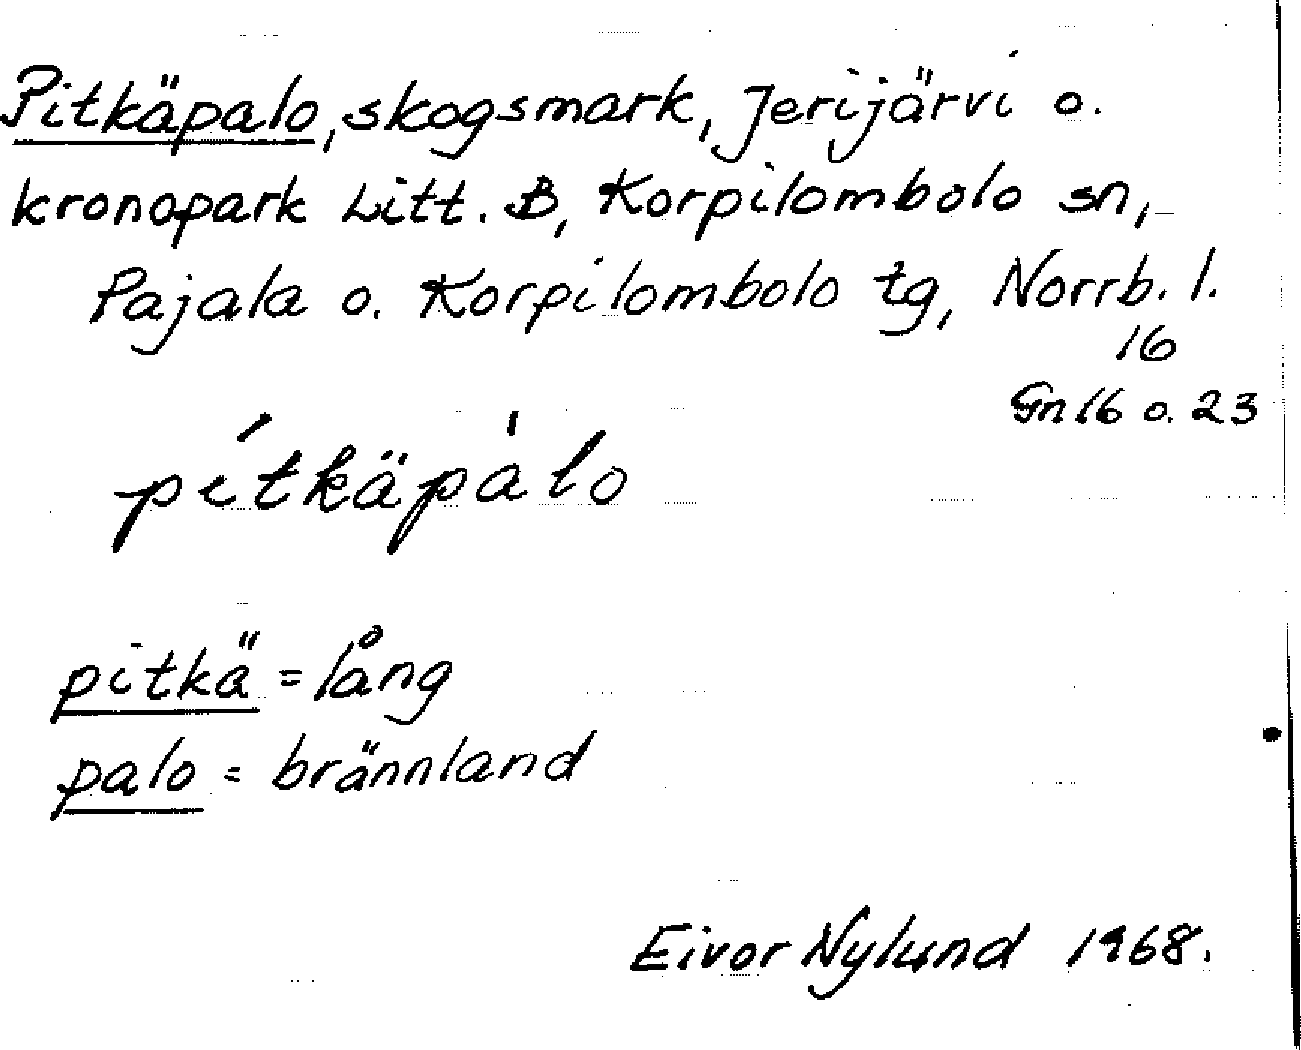 Pitkäpalo, skogsmark, Jerijärvi o.
kronopark Litt. B, Korpilombolo sn,
Pajala o. Korpilombolo tg, Norrb. l.
16
Gn 16 o. 23
pítkäpàlo
pitkä = lång
palo = brännland
Eivor Nylund 1968.